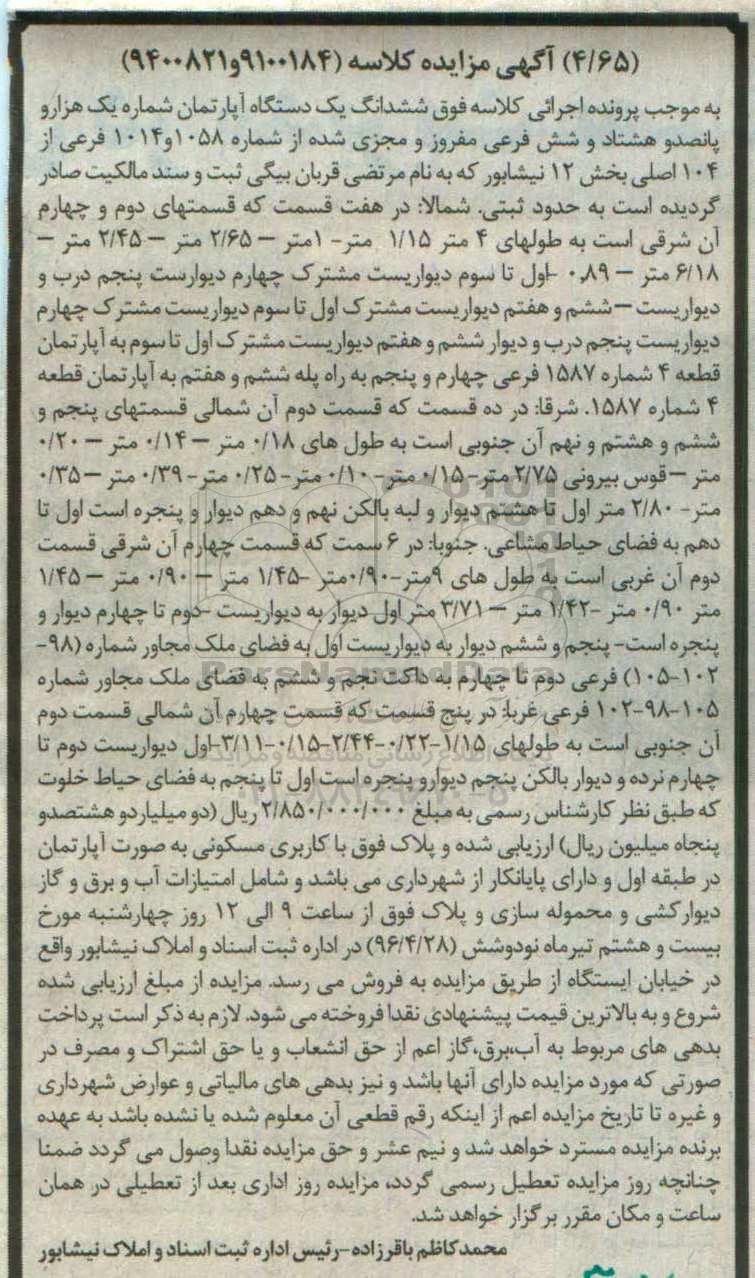 (۴/۶۵) آگهی مزایده کلاسه (۹۱۰۰۱۸۴و۹۴۰۰۸۲۱)
به موجب پرونده اجرائی کلاسه فوق ششدانگ یک دستگاه آپارتمان شماره یک هزارو
پانصدو هشتاد و شش فرعی مفروز و مجزی شده از شماره ۱۰۵۸و۱۰۱۴ فرعی از
۱۰۴ اصلی بخش ۱۲ نیشابور که به نام مرتضی قربان بیگی ثبت و سند مالکیت صادر
گردیده است به حدود ثبتی. شمالا: در هفت قسمت که قسمتهای دوم و چهارم
آن شرقی است به طولهای ۴ متر ۱/۱۵ متر- ۱متر – ۲/۶۵ متر – ۲/۴۵ متر –
۶/۱۸ متر – ۰.۸۹ -اول تا سوم دیواریست مشترک چهارم دیوارست پنجم درب و
دیواریست –ششم و هفتم دیواریست مشترک اول تا سوم دیواریست مشترک چهارم
دیواریست پنجم درب و دیوار ششم و هفتم دیواریست مشترک اول تا سوم به آپارتمان
قطعه ۴ شماره ۱۵۸۷ فرعی چهارم و پنجم به راه پله ششم و هفتم به آپارتمان قطعه
۴ شماره ۱۵۸۷. شرقا: در ده قسمت که قسمت دوم آن شمالی قسمتهای پنجم و
ششم و هشتم و نهم آن جنوبی است به طول های ۰/۱۸ متر – ۰/۱۴ متر – ۰/۲۰
متر –قوس بیرونی ۲/۷۵ متر- ۰/۱۵ متر- ۰/۱۰ متر- ۰/۲۵ متر- ۰/۳۹ متر –۰/۳۵
متر- ۲/۸۰ متر اول تا هشتم دیوار و لبه بالکن نهم و دهم دیوار و پنجره است اول تا
دهم به فضای حیاط مشاعی. جنوبا: در ۶ سمت که قسمت چهارم آن شرقی قسمت
دوم آن غربی است به طول های ۹متر-۰/۹۰متر -۱/۴۵ متر – ۰/۹۰ متر – ۱/۴۵
متر ۰/۹۰ متر -۱/۴۲ متر – ۳/۷۱ متر اول دیوار به دیواریست -دوم تا چهارم دیوار و
پنجره است- پنجم و ششم دیوار به دیواریست اول به فضای ملک مجاور شماره (۹۸-
۱۰۲-۱۰۵) فرعی دوم تا چهارم به داکت نجم و ششم به فضای ملک مجاور شماره
۱۰۵-۹۸-۱۰۲ فرعی غربا: در پنج قسمت که قسمت چهارم آن شمالی قسمت دوم
آن جنوبی است به طولهای ۱/۱۵-۰/۲۲-۲/۴۴-۰/۱۵-۳/۱۱-اول دیواریست دوم تا
چهارم نرده و دیوار بالکن پنجم دیوارو پنجره است اول تا پنجم به فضای حیاط خلوت
که طبق نظر کارشناس رسمی به مبلغ ۲/۸۵۰/۰۰۰/۰۰۰ ریال (دو میلیاردو هشتصدو
پنجاه میلیون ریال) ارزیابی شده و پلاک فوق با کاربری مسکونی به صورت آپارتمان
در طبقه اول و دارای پایانکار از شهرداری می باشد و شامل امتیازات آب و برق و گاز
دیوارکشی و محموله سازی و پلاک فوق از ساعت ۹ الی ۱۲ روز چهارشنبه مورخ
بیست و هشتم تیرماه نودوشش (۹۶/۴/۲۸) در اداره ثبت اسناد و املاک نیشابور واقع
در خیابان ایستگاه از طریق مزایده به فروش می رسد. مزایده از مبلغ ارزیابی شده
شروع و به بالاترین قیمت پیشنهادی نقدا فروخته می شود. لازم به ذکر است پرداخت
بدهی های مربوط به آب،برق،گاز اعم از حق انشعاب و یا حق اشتراک و مصرف در
صورتی که مورد مزایده دارای آنها باشد و نیز بدهی های مالیاتی و عوارض شهرداری
و غیره تا تاریخ مزایده اعم از اینکه رقم قطعی آن معلوم شده یا نشده باشد به عهده
برنده مزایده مسترد خواهد شد و نیم عشر و حق مزایده نقدا وصول می گردد ضمنا
چنانچه روز مزایده تعطیل رسمی گردد، مزایده روز اداری بعد از تعطیلی در همان
ساعت و مکان مقرر برگزار خواهد شد.
محمدکاظم باقرزاده-رئیس اداره ثبت اسناد و املاک نیشابور
ParsNamadData